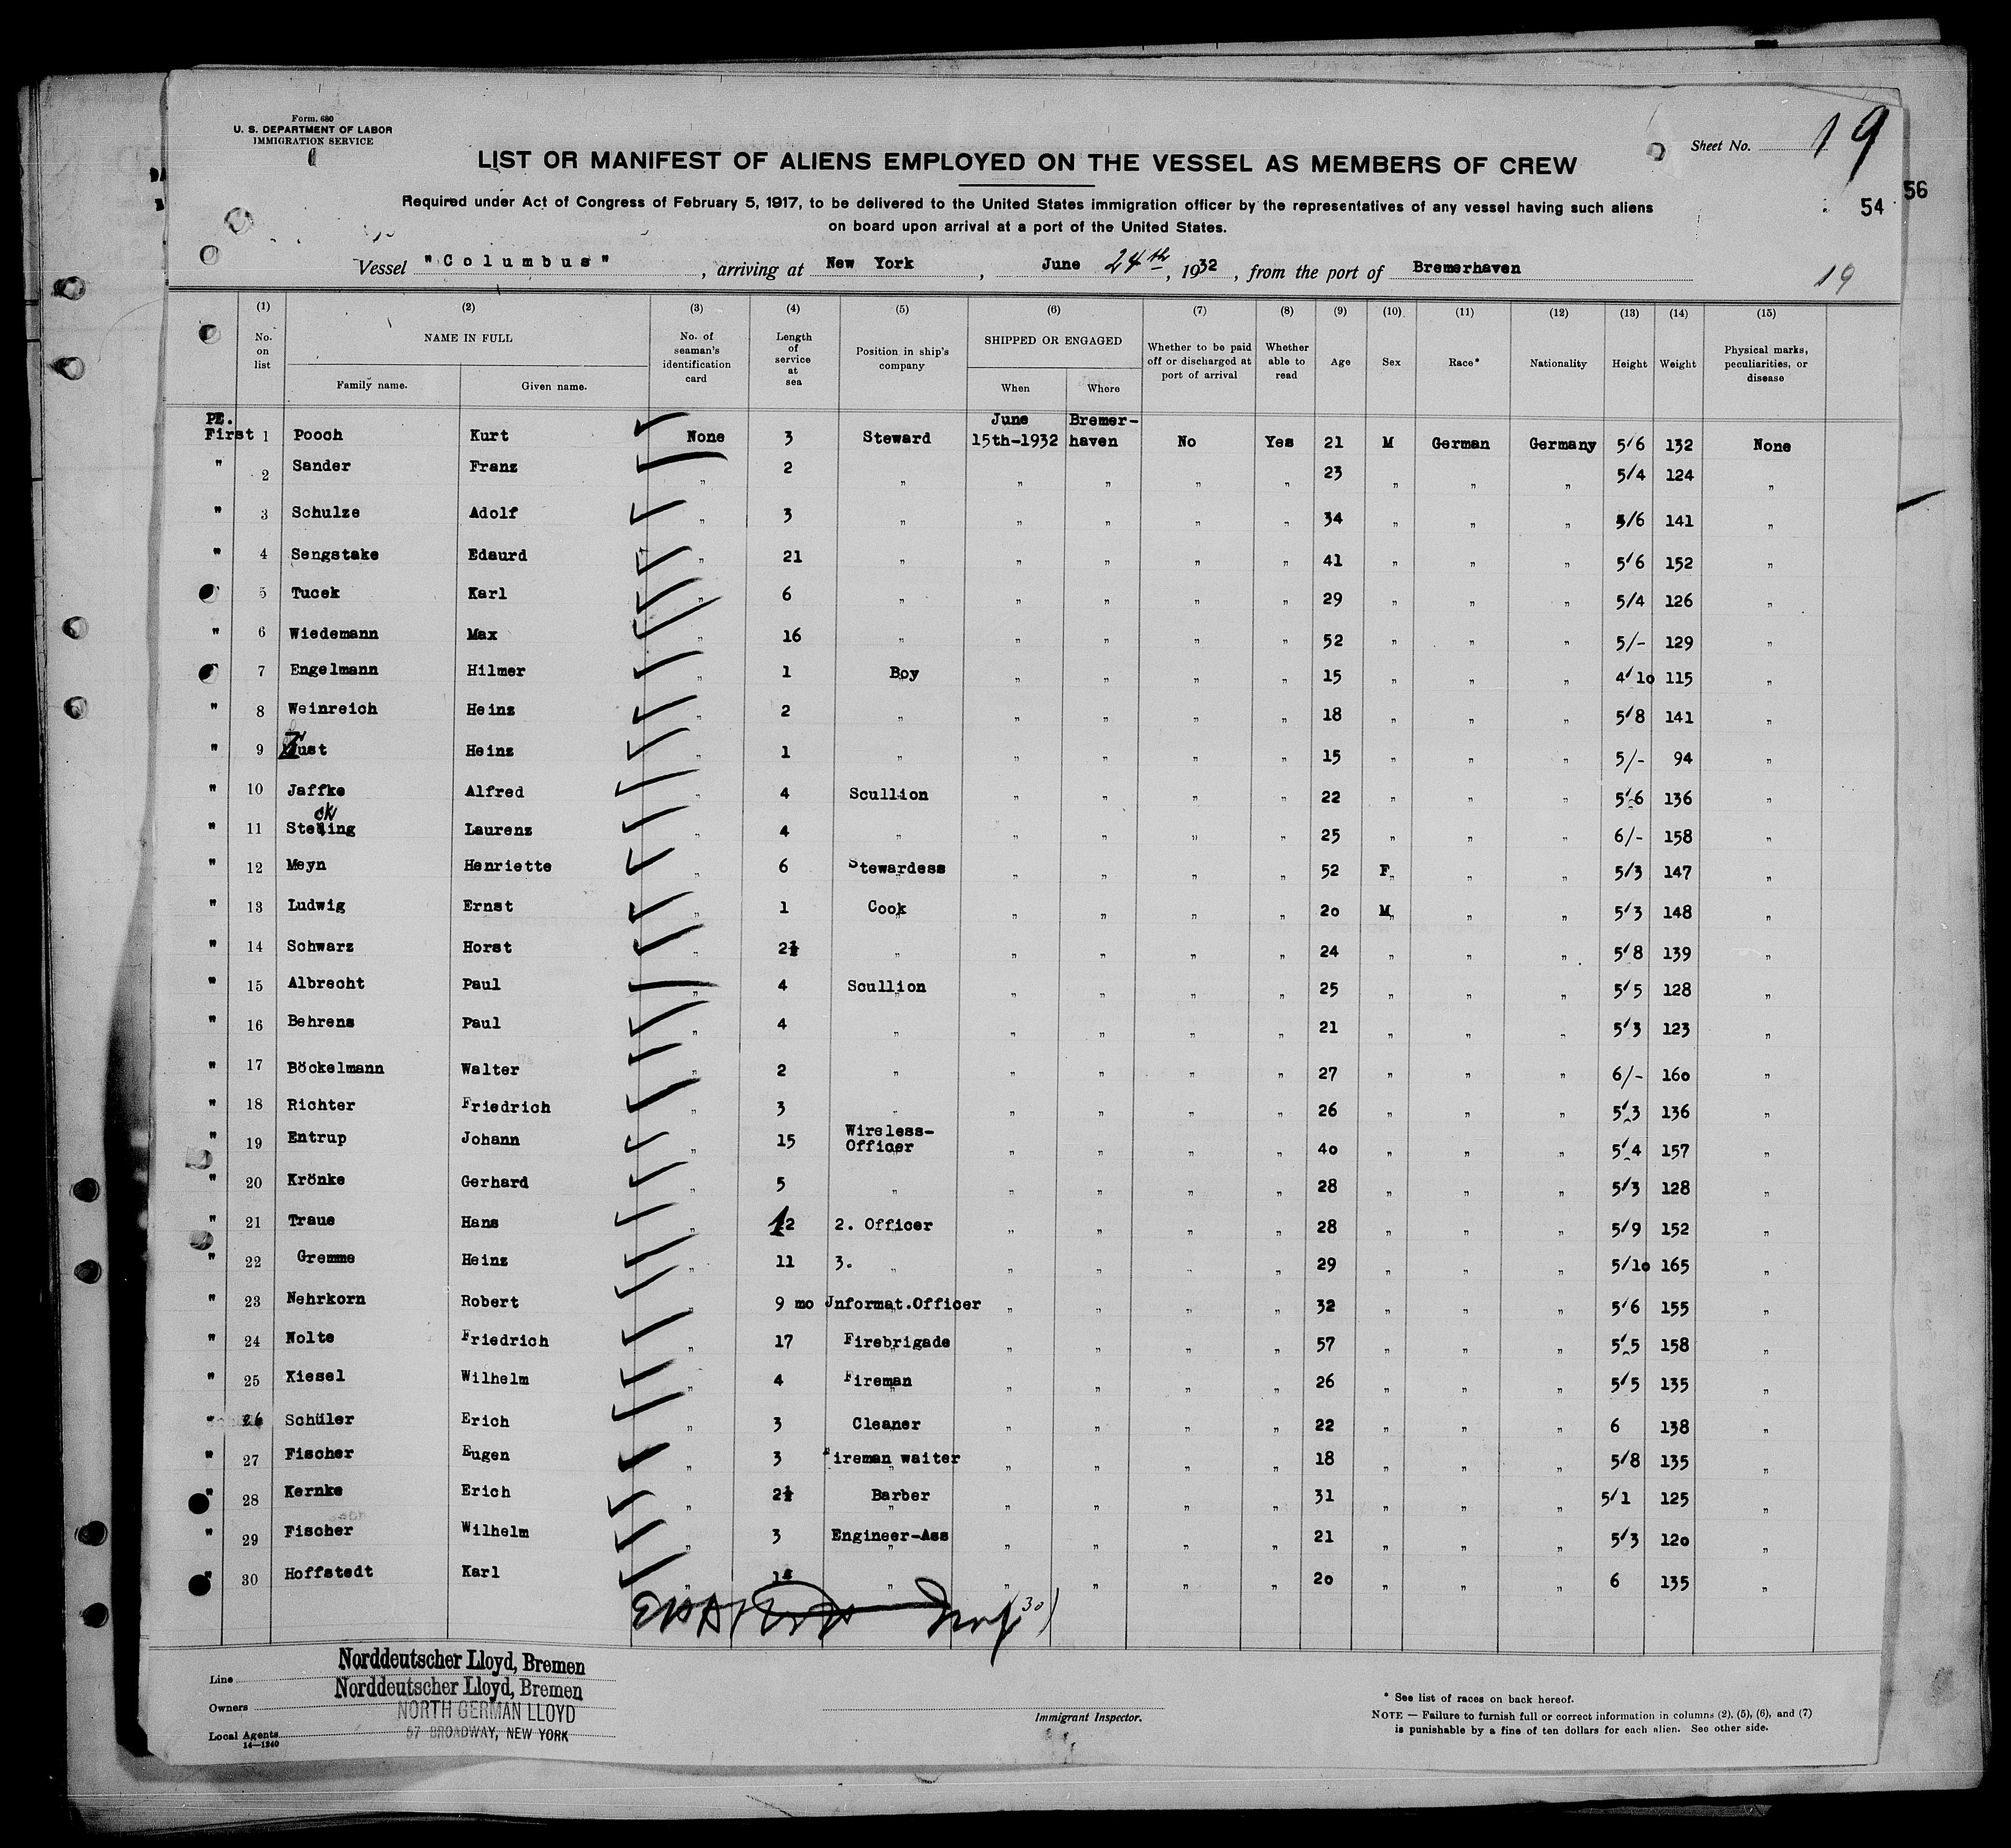 Form. 680
U. S. DEPARTMENT OF LABOR
IMMIGRATION SERVICE
Sheet No. 19
LIST OR MANIFEST OF ALIENS EMPLOYED ON THE VESSEL AS MEMBERS OF CREW
56
54
Required under Act of Congress of February 5, 1917, to be delivered to the United States immigration officer by the representatives of any vessel having such aliens
on board upon arrival at a port of the United States.
Vessel "Columbus", arriving at New York, June 24th, 1932, from the port of Bremerhaven
19
(1) (2) (3) (4) (5) (6) (7) (8) (9) (10) (11) (12) (13) (14) (15)
No. on list NAME IN FULL Family name. Given name. No. of seaman's identification card Length of service at sea Position in ship's company SHIPPED OR ENGAGED When Where Whether to be paid off or discharged at port of arrival Whether able to read Age Sex Race* Nationality Height Weight Physical marks, peculiarities, or disease
PE.
First 1 Pooch Kurt None 3 Steward June 15th-1932 Bremer-haven No Yes 21 M German Germany 5/6 132 None
" 2 Sander Franz " 2 " " " " " 23 " " " 5/4 124 "
" 3 Schulze Adolf " 3 " " " " " 34 " " " 5/6 141 "
" 4 Sengstake Edaurd " 21 " " " " " 41 " " " 5/6 152 "
5 Tucek Karl " 6 " " " " " 29 " " " 5/4 126 "
" 6 Wiedemann Max " 16 " " " " " 52 " " " 5/- 129 "
7 Engelmann Hilmer " 1 Boy " " " " 15 " " " 4/10 115 "
" 8 Weinreich Heinz " 2 " " " " " 18 " " " 5/8 141 "
" 9 Just Heinz " 1 " " " " " 15 " " " 5/- 94 "
" 10 Jaffke Alfred " 4 Scullion " " " " 22 " " " 5/6 136 "
" 11 Laurenz " 4 " " " " " 25 " " " 6/- 158 "
" 12 Meyn Henriette " 6 Stewardess " " " " 52 F " " 5/3 147 "
" 13 Ludwig Ernst " 1 Cook " " " " 20 M " " 5/3 148 "
" 14 Schwarz Horst " 2½ " " " " " 24 " " " 5/8 139 "
" 15 Albrecht Paul " 4 Scullion " " " " 25 " " " 5/5 128 "
" 16 Behrens Paul " 4 " " " " " 21 " " " 5/3 123 "
" 17 Böckelmann Walter " 2 " " " " " 27 " " " 6/- 160 "
" 18 Richter Friedrich " 3 " " " " " 26 " " " 5/3 136 "
" 19 Entrup Johann " 15 Wireless-Officer " " " " 40 " " " 5/4 157 "
" 20 Krönke Gerhard " 5 " " " " " 28 " " " 5/3 128 "
" 21 Traue Hans " 12 2. Officer " " " " 28 " " " 5/9 152 "
" 22 Gremme Heinz " 11 3. " " " " " 29 " " " 5/10 165 "
" 23 Nehrkorn Robert " 9 mo Jnformat.Officer " " " " 32 " " " 5/6 155 "
" 24 Nolte Friedrich " 17 Firebrigade " " " " 57 " " " 5/5 158 "
" 25 Kiesel Wilhelm " 4 Fireman " " " " 26 " " " 5/5 135 "
" 26 Schüler Erich " 3 Cleaner " " " " 22 " " " 6 138 "
" 27 Fischer Eugen " 3 Fireman waiter " " " " 18 " " " 5/8 135 "
" 28 Kernke Erich " 2½ Barber " " " " 31 " " " 5/1 125 "
" 29 Fischer Wilhelm " 3 Engineer-Ass " " " " 21 " " " 5/3 120 "
" 30 Hoffstedt Karl " " " " " " 20 " " " 6 135 "
30
Line Norddeutscher Lloyd, Bremen
Owners Norddeutscher Lloyd, Bremen
NORTH GERMAN LLOYD
Local Agents 57 BROADWAY, NEW YORK
14—1240
Immigrant Inspector.
* See list of races on back hereof.
NOTE — Failure to furnish full or correct information in columns (2), (5), (6), and (7)
is punishable by a fine of ten dollars for each alien. See other side.